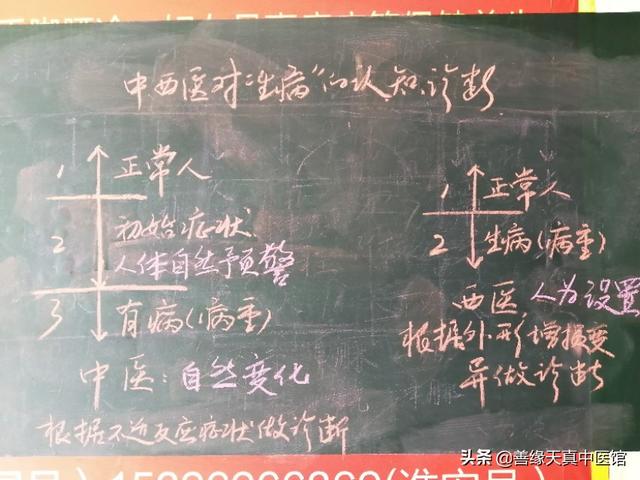 中西医对“生病”的认知诊断
1 正常人
2 初始症状
人体自然预警
3 有病(病重)
中医：自然变化
根据不适反应症状做诊断
1 正常人
2 生病(病重)
西医 人为设置
根据外形增损变
异做诊断
头条 @善缘天真中医馆